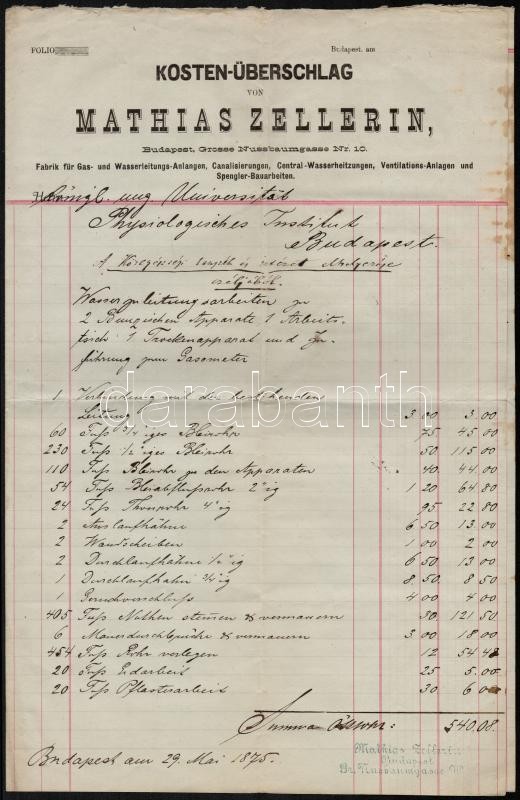 FOLIO
Budapest, am
KOSTEN-ÜBERSCHLAG
VON
MATHIAS ZELLERIN,
Budapest, Grosse Nussbaumgasse Nr. 10.
Fabrik für Gas- und Wasserleitungs-Anlangen, Canalisierungen, Central-Wasserheitzungen, Ventilations-Anlagen und
Spengler-Bauarbeiten.
Königl. ung Universität
Physiologisches Institut
Budapest.
A Közegészségi
céljából.
Wasserzuleitungsarbeiten zu
2 Bungischen Apparate 1 Arbeits-
tisch 1 Trockenapparat und Zu-
führung zum Gasometer
darabanth
1 Verbindung mit der bestehenden
Leitung 3 00 3.00
60 Fuß 3/4"iges Bleirohr 75 45 00
230 Fuß 1/2"iges Bleirohr 50 115 00
110 Fuß Bleirohr zu den Apparaten 40 44 00
54 Fuß Bleiabflussrohr 2"ig 1 20 64 80
24 Fuß Thonrohr 4"ig 95 22 80
2 Auslaufhähne 6 50 13 00
2 Wandscheiben 1 00 2 00
2 Durchlaufhähne 1/2"ig 6 50 13 00
1 Durchlaufhahn 3/4"ig 8 50 8 50
1 Geruchverschluß 4 00 4 00
405 Fuß Nuthen stemen & vermauern 30 121 50
6 Mauerdurchbrüche & vermauern 3 00 18 00
454 Fuß Rohr verlegen 12 54 48
20 Fuß Erdarbeit 25 5 00
20 Fuß Pflasterarbeit 30 6 00
Summa Ö.W. fl: 540.08.
Budapest am 29. Mai 1875.
Mathias Zellerin
Budapest
Gr. Nussbaumgasse